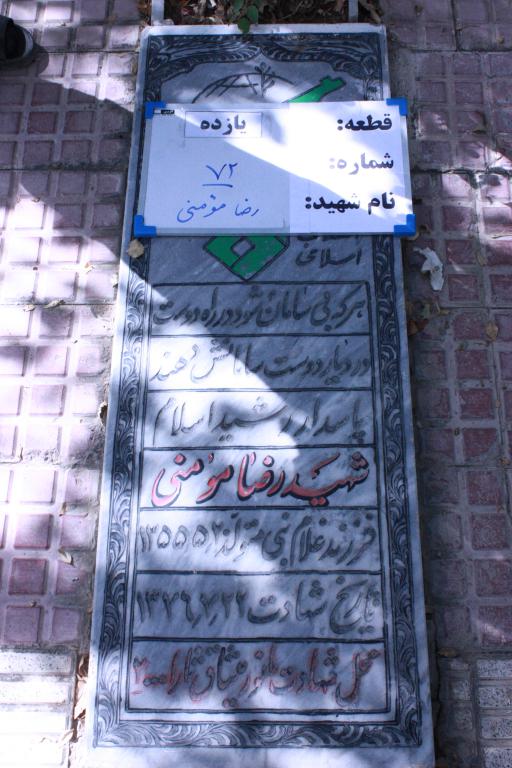 قطعه: یازده
شماره: ۷۲
نام شهید: رضا مؤمنی
اسلامی
هر که بی سامان شود در راه دوست
در دیار دوست سامانش دهند
پاسدار رشید اسلام
شهید رضا مؤمنی
فرزند غلام نبی متولد ۱۳۵۵،۵،۲
تاریخ شهادت ۱۳۷۶،۷،۲۲
محل شهادت مانور عشاق ثارا...